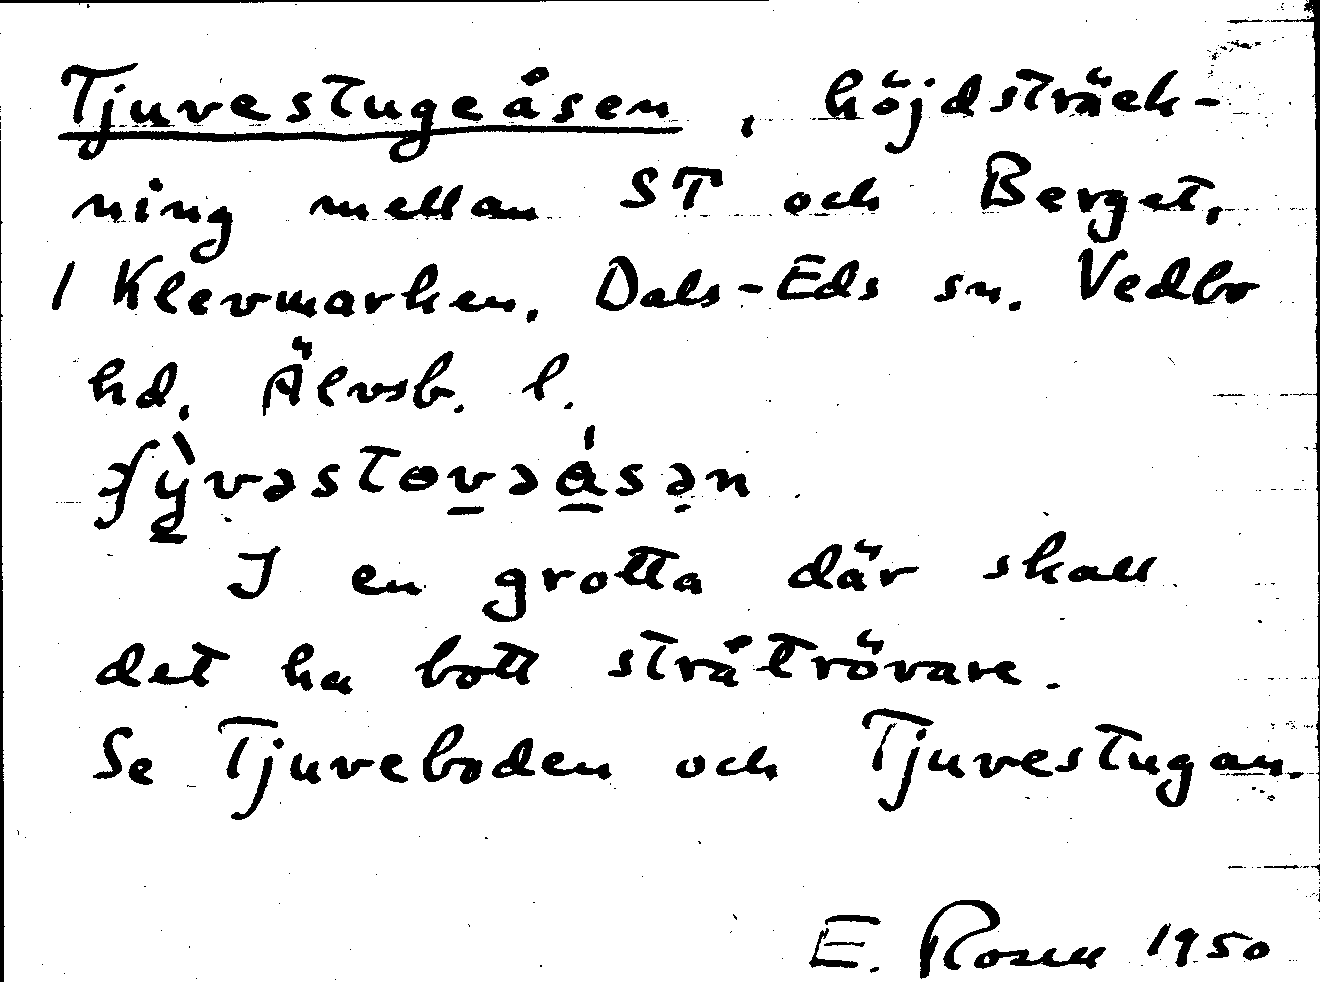 Tjuvestugeåsen, höjdsträck-
ning mellan ST och Berget,
1 Klevmarken, Dals-Eds sn. Vedbo
hd, Älvsb. l.
I en grotta där skall
det ha bott stråtrövare.
Se Tjuveboden och Tjuvestugan.
E. Rosell 1950